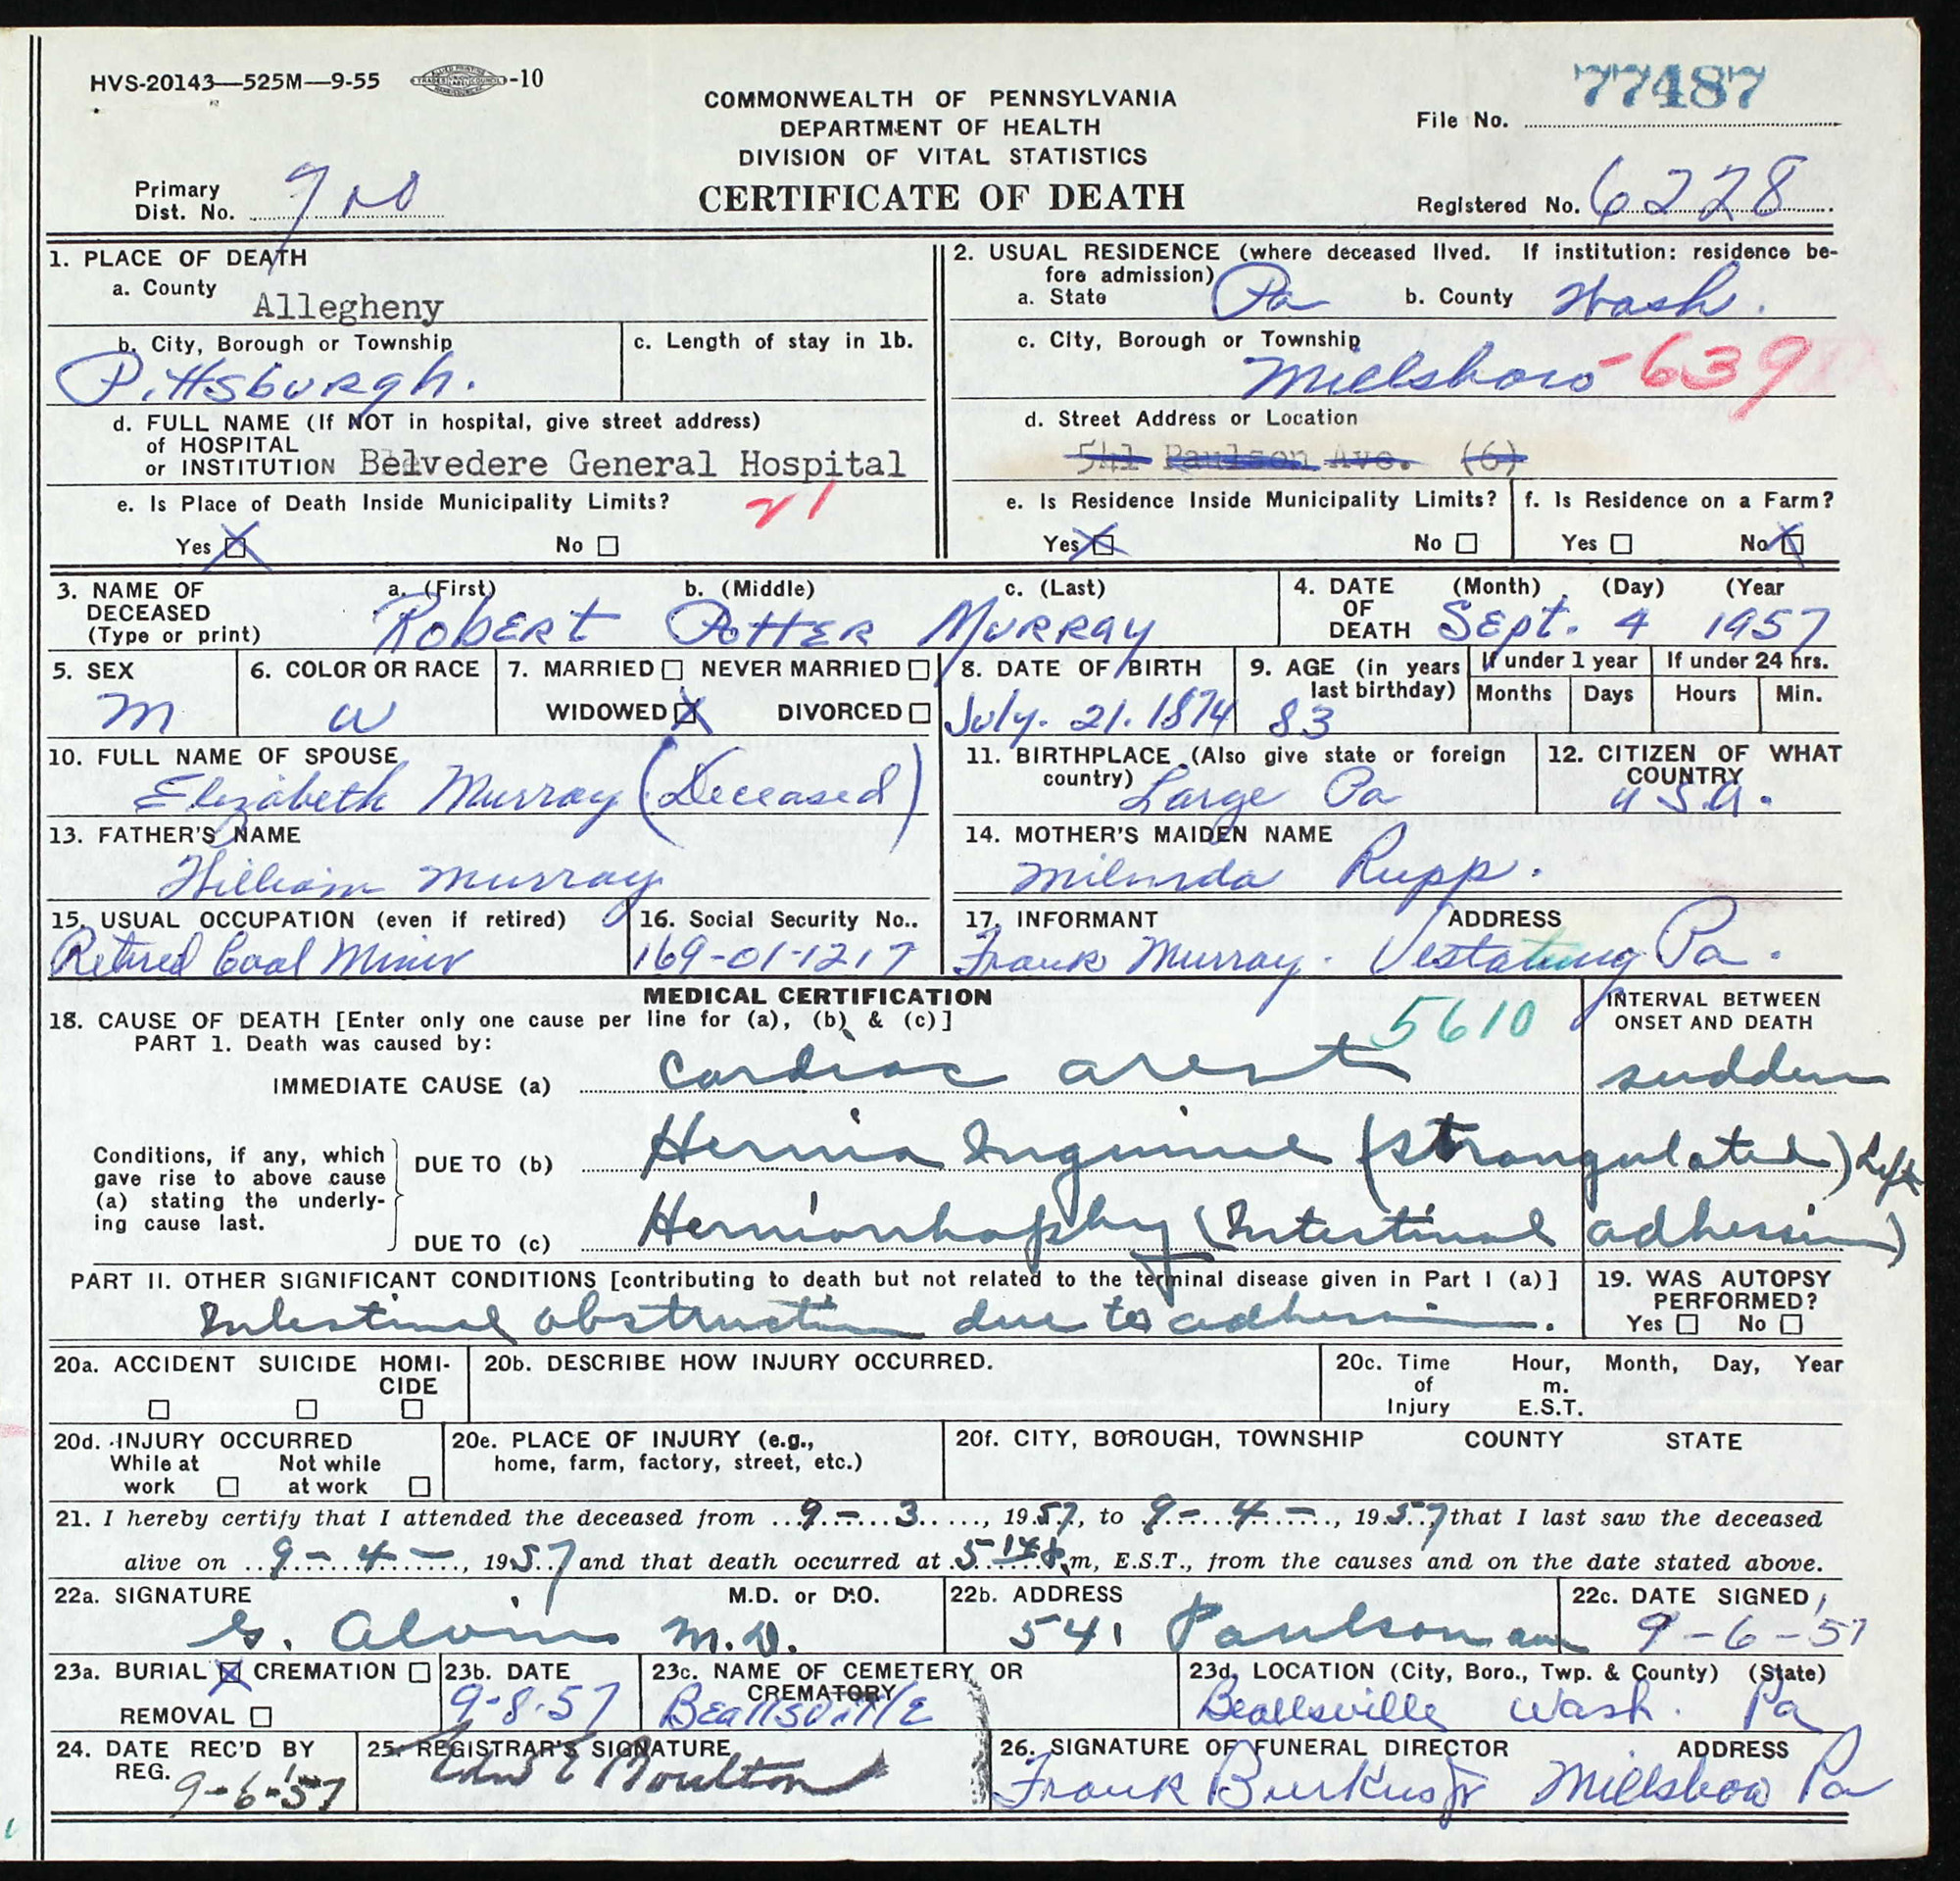 HVS-20143—525M—9-55 -10
77487
COMMONWEALTH OF PENNSYLVANIA
File No.
DEPARTMENT OF HEALTH
DIVISION OF VITAL STATISTICS
Primary
Dist. No.
CERTIFICATE OF DEATH
Registered No. 6228
1. PLACE OF DEATH
a. County
Allegheny
b. City, Borough or Township
c. Length of stay in 1b.
Pittsburgh.
d. FULL NAME (If NOT in hospital, give street address)
of HOSPITAL
or INSTITUTION Belvedere General Hospital
e. Is Place of Death Inside Municipality Limits?
21
Yes No
2. USUAL RESIDENCE (where deceased lived. If institution: residence be-
fore admission)
a. State Pa b. County Wash.
c. City, Borough or Township
Millsboro -639
d. Street Address or Location
541 Paulson Ave. (6)
e. Is Residence Inside Municipality Limits? f. Is Residence on a Farm?
Yes No Yes No
3. NAME OF
DECEASED
(Type or print)
a. (First) b. (Middle) c. (Last)
Robert Potter Murray
4. DATE
OF
DEATH
(Month) (Day) (Year
Sept. 4 1957
5. SEX
M
6. COLOR OR RACE
W
7. MARRIED NEVER MARRIED
WIDOWED DIVORCED
8. DATE OF BIRTH
July. 21. 1874
9. AGE (in years
last birthday)
83
If under 1 year If under 24 hrs.
Months Days Hours Min.
10. FULL NAME OF SPOUSE
Elizabeth Murray (Deceased)
11. BIRTHPLACE (Also give state or foreign
country)
Large Pa
12. CITIZEN OF WHAT
COUNTRY
U.S.A.
13. FATHER'S NAME
William Murray
14. MOTHER'S MAIDEN NAME
Rupp.
15. USUAL OCCUPATION (even if retired)
Retired Coal Miner
16. Social Security No..
169-01-1217
17. INFORMANT ADDRESS
Frank Murray. Vestaburg Pa.
MEDICAL CERTIFICATION
18. CAUSE OF DEATH [Enter only one cause per line for (a), (b) & (c)]
5610
INTERVAL BETWEEN
ONSET AND DEATH
PART 1. Death was caused by:
IMMEDIATE CAUSE (a) Cardiac arest sudden
Conditions, if any, which
gave rise to above cause
(a) stating the underly-
ing cause last.
DUE TO (b) Hernia (strangulated) Left
DUE TO (c) (Intestinal adhesion)
PART II. OTHER SIGNIFICANT CONDITIONS [contributing to death but not related to the terminal disease given in Part I (a)]
Intestinal obstruction due to adhesion.
19. WAS AUTOPSY
PERFORMED?
Yes No
20a. ACCIDENT SUICIDE HOMI-
CIDE
20b. DESCRIBE HOW INJURY OCCURRED.
20c. Time
of
Injury
Hour, Month, Day, Year
m.
E.S.T.
20d. INJURY OCCURRED
While at Not while
work at work
20e. PLACE OF INJURY (e.g.,
home, farm, factory, street, etc.)
20f. CITY, BOROUGH, TOWNSHIP COUNTY STATE
21. I hereby certify that I attended the deceased from 9-3, 1957, to 9-4-, 1957, that I last saw the deceased
alive on 9-4-, 1957 and that death occurred at m, E.S.T., from the causes and on the date stated above.
22a. SIGNATURE M.D. or D.O.
G. Alvin M.D.
22b. ADDRESS
541 Paulson ave
22c. DATE SIGNED
9-6-57
23a. BURIAL CREMATION
REMOVAL
23b. DATE
9-8-57
23c. NAME OF CEMETERY OR
CREMATORY
Beallsville
23d. LOCATION (City, Boro., Twp. & County) (State)
Beallsville Wash. Pa
24. DATE REC'D BY
REG.
9-6-57
25. REGISTRAR'S SIGNATURE
26. SIGNATURE OF FUNERAL DIRECTOR ADDRESS
Frank Burkus Jr Millsboro Pa